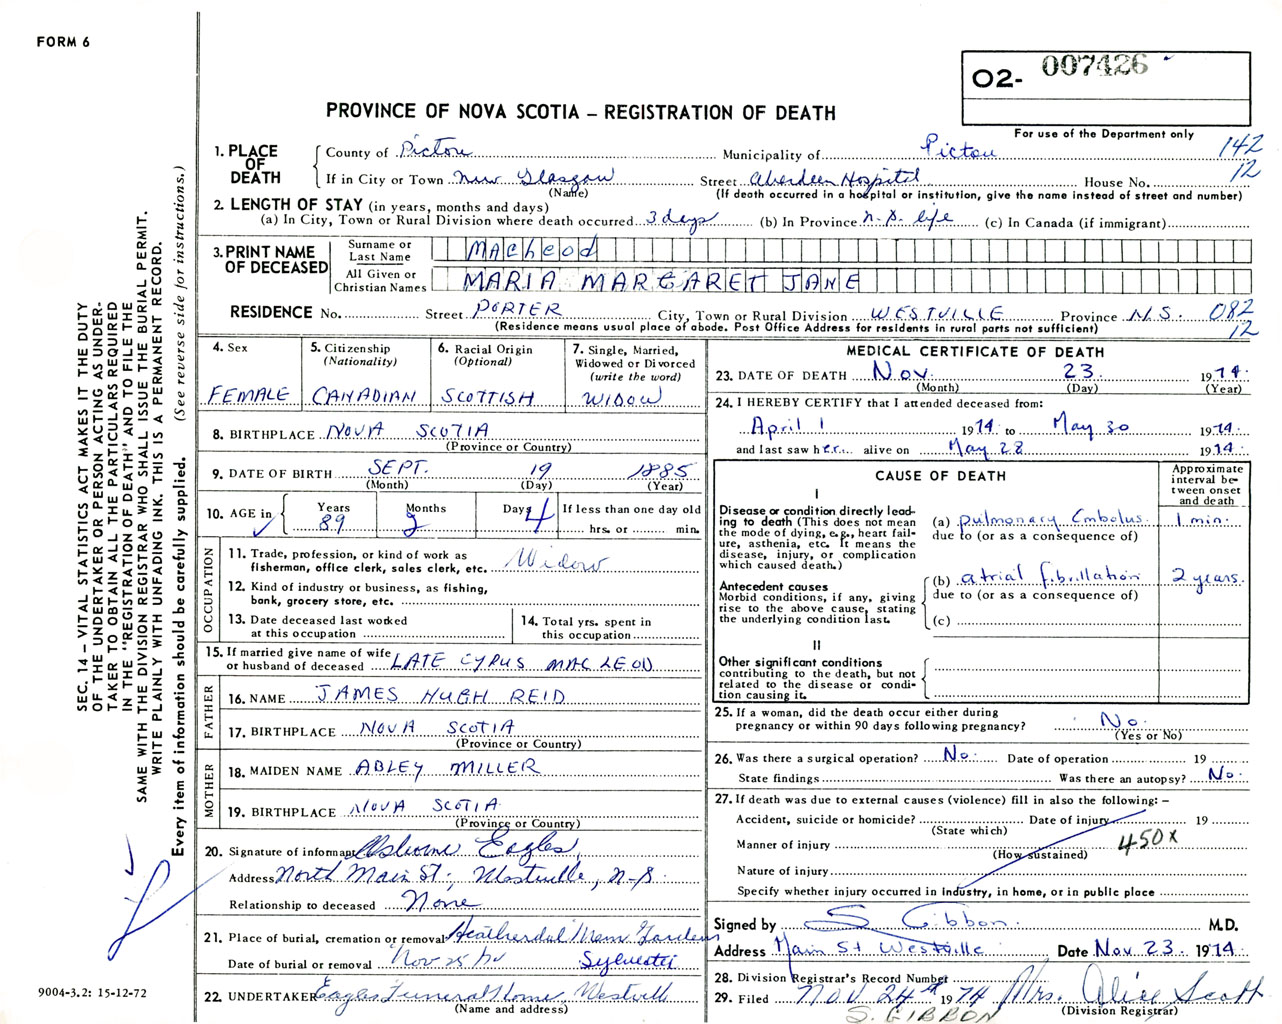 FORM 6
O2- 007426
PROVINCE OF NOVA SCOTIA – REGISTRATION OF DEATH
For use of the Department only
1. PLACE OF DEATH
County of Pictou Municipality of Pictou 142
If in City or Town New Glasgow Street Aberdeen Hospital House No. 12
(Name) (If death occurred in a hospital or institution, give the name instead of street and number)
2. LENGTH OF STAY (in years, months and days)
(a) In City, Town or Rural Division where death occurred 3 days (b) In Province N.S. life (c) In Canada (if immigrant)
3. PRINT NAME OF DECEASED
Surname or Last Name MacLeod
All Given or Christian Names MARIA MARGARET JANE
RESIDENCE No. Street PORTER City, Town or Rural Division WESTVILLE Province N.S. 082
(Residence means usual place of abode. Post Office Address for residents in rural parts not sufficient) 12
4. Sex FEMALE
5. Citizenship (Nationality) CANADIAN
6. Racial Origin (Optional) SCOTTISH
7. Single, Married, Widowed or Divorced (write the word) WIDOW
8. BIRTHPLACE NOVA SCOTIA
(Province or Country)
9. DATE OF BIRTH SEPT. 19 1885
(Month) (Day) (Year)
10. AGE in Years 89 Months 2 Days 4 If less than one day old
hrs. or min.
OCCUPATION
11. Trade, profession, or kind of work as fisherman, office clerk, sales clerk, etc. Widow
12. Kind of industry or business, as fishing, bank, grocery store, etc.
13. Date deceased last worked at this occupation
14. Total yrs. spent in this occupation
15. If married give name of wife or husband of deceased LATE CYRUS MACLEOD
FATHER
16. NAME JAMES HUGH REID
17. BIRTHPLACE NOVA SCOTIA
(Province or Country)
MOTHER
18. MAIDEN NAME ABLEY MILLER
19. BIRTHPLACE NOVA SCOTIA
(Province or Country)
20. Signature of informant Osborne Eagles
Address North Main St., Westville, N-S.
Relationship to deceased None
21. Place of burial, cremation or removal Heatherdale Mem Gardens
Date of burial or removal Nov 25/74 Sylvester
22. UNDERTAKER Eagles Funeral Home, Westville
(Name and address)
MEDICAL CERTIFICATE OF DEATH
23. DATE OF DEATH Nov. 23. 1974.
(Month) (Day) (Year)
24. I HEREBY CERTIFY that I attended deceased from:
April 1 1974 to May 30 1974.
and last saw her alive on May 28 1974.
CAUSE OF DEATH
Approximate interval between onset and death
I
Disease or condition directly leading to death (This does not mean the mode of dying, e.g., heart failure, asthenia, etc. It means the disease, injury, or complication which caused death.)
(a) pulmonary Embolus. 1 min.
due to (or as a consequence of)
Antecedent causes
Morbid conditions, if any, giving rise to the above cause, stating the underlying condition last.
(b) atrial fibrillation 2 years.
due to (or as a consequence of)
(c)
II
Other significant conditions contributing to the death, but not related to the disease or condition causing it.
25. If a woman, did the death occur either during pregnancy or within 90 days following pregnancy? No.
(Yes or No)
26. Was there a surgical operation? No. Date of operation 19
State findings Was there an autopsy? No.
27. If death was due to external causes (violence) fill in also the following: –
Accident, suicide or homicide? Date of injury 19
(State which)
Manner of injury 450x
(How sustained)
Nature of injury
Specify whether injury occurred in industry, in home, or in public place
Signed by S Gibbon. M.D.
Address Main St Westville Date Nov. 23. 1974
28. Division Registrar's Record Number
29. Filed Nov. 24th 1974 Mrs. Alice Scott
S. GIBBON (Division Registrar)
SEC. 14 – VITAL STATISTICS ACT MAKES IT THE DUTY
OF THE UNDERTAKER OR PERSON ACTING AS UNDER-
TAKER TO OBTAIN ALL THE PARTICULARS REQUIRED
IN THE "REGISTRATION OF DEATH" AND TO FILE THE
SAME WITH THE DIVISION REGISTRAR WHO SHALL ISSUE THE BURIAL PERMIT.
WRITE PLAINLY WITH UNFADING INK. THIS IS A PERMANENT RECORD.
Every item of information should be carefully supplied. (See reverse side for instructions.)
9004-3.2: 15-12-72